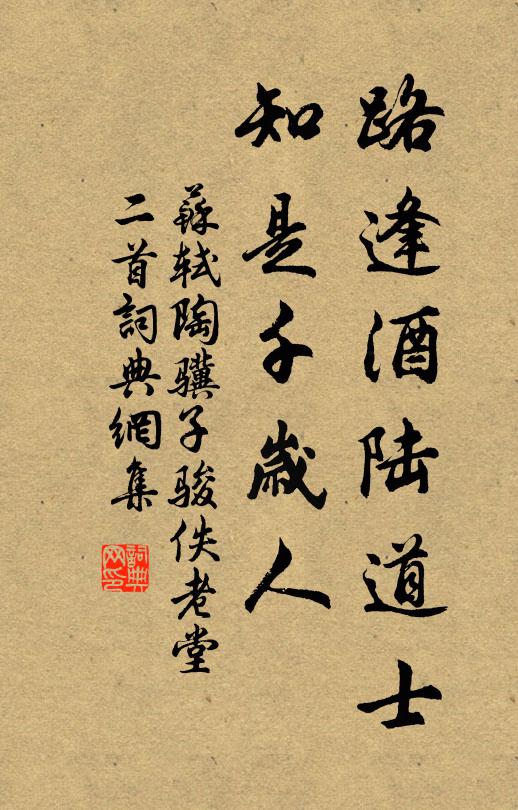 路逢酒陆道士
知是千歲人
蘇轼陶骥子骏佚老堂
二首詞典網集
詞典网印